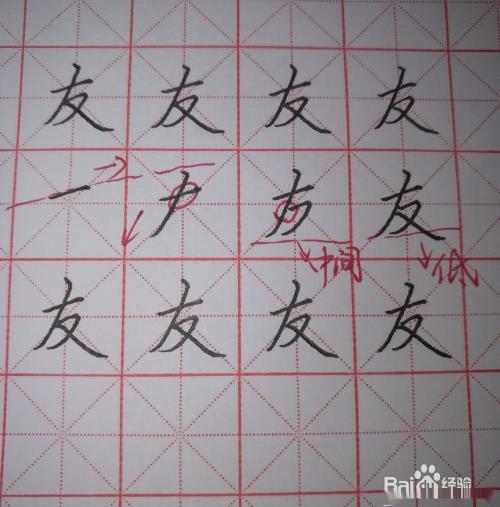 友 友 友 友
一 ナ 方 友
中间 低
友 友 友 友
Bai 经验